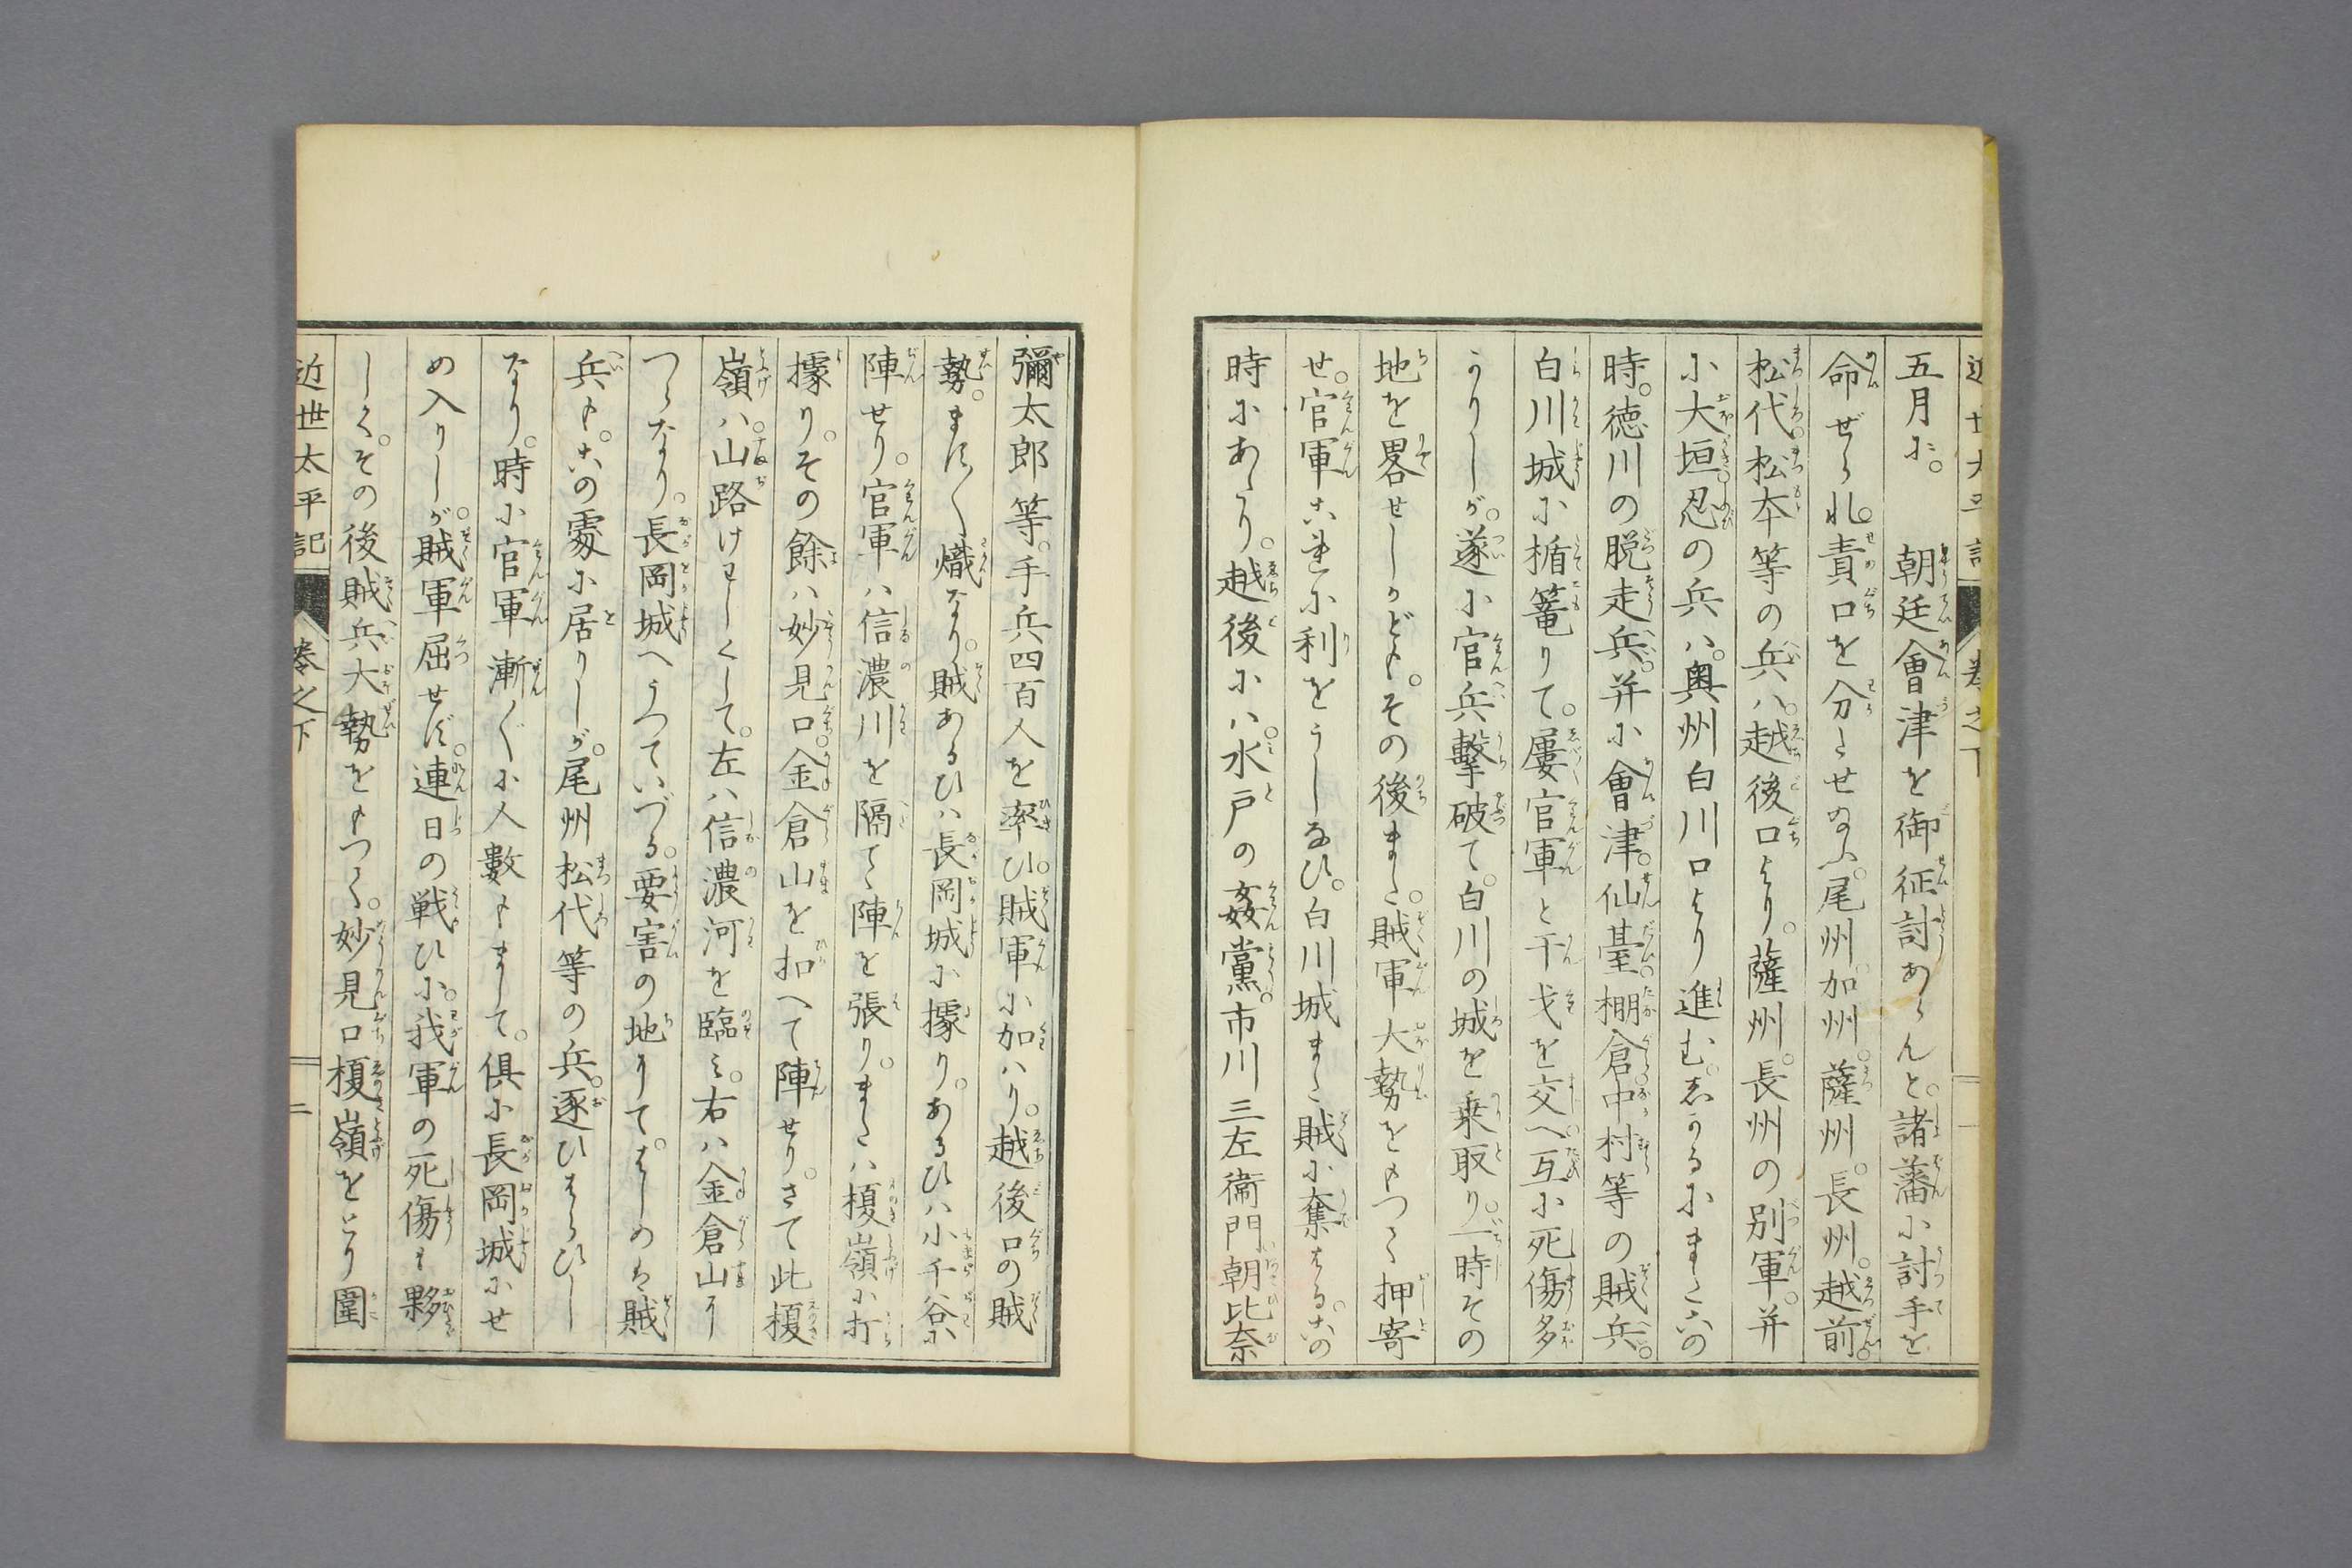 五月に。　朝廷會津を御征討あらんと。諸藩に討手を
命ぜられ。責口を分たせ給ふ。尾州。加州。薩州。長州。越前。
松代。松本等の兵ハ。越後口より。薩州。長州の別軍。并
に大垣。忍の兵ハ。奥州白川口より進む。志かるにまたこの
時。徳川の脱走兵。并に會津。仙臺。棚倉。中村等の賊兵。
白川城に楯篭りて。屡官軍と干戈を交へ。互に死傷多
かりしが。遂に官兵撃破て。白川の城を乗取り。一時その
地を畧せしかども。その後また。賊軍大勢をもつて押寄
せ。官軍これに利をうしなひ。白川城また賊に奪はる。この
時にあたり。越後にハ。水戸の姦黨。市川三左衞門朝比奈
彌太郎等。手兵四百人を率ひ。賊軍に加ハり。越後口の賊
勢。ます〱熾なり。賊あるひハ長岡城に據り。あるひハ小千谷に
陣せり。官軍ハ信濃川を隔て陣を張り。またハ榎嶺に打
據り。その餘ハ妙見口。金倉山を扣へて陣せり。さて此榎
嶺ハ。山路けはしくして。左ハ信濃河を臨み。右ハ金倉山に
つらなり。長岡城へうつていづる。要害の地にて。はじめは賊
兵も。この處に居りしが。尾州松代等の兵。逐ひはらひし
なり。時に官軍漸〲に人數もまして。倶に長岡城にせ
め入りしが。賊軍屈せず。連日の戦ひに。我軍の死傷も夥
しく。その後賊兵大勢をもつて。妙見口榎嶺をとり圍
近世太平記　卷之下　二